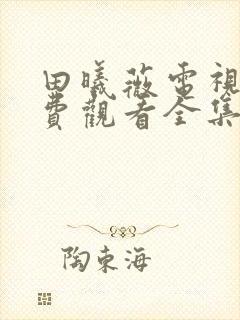 田曦薇電視
費觀看全集
陶東海